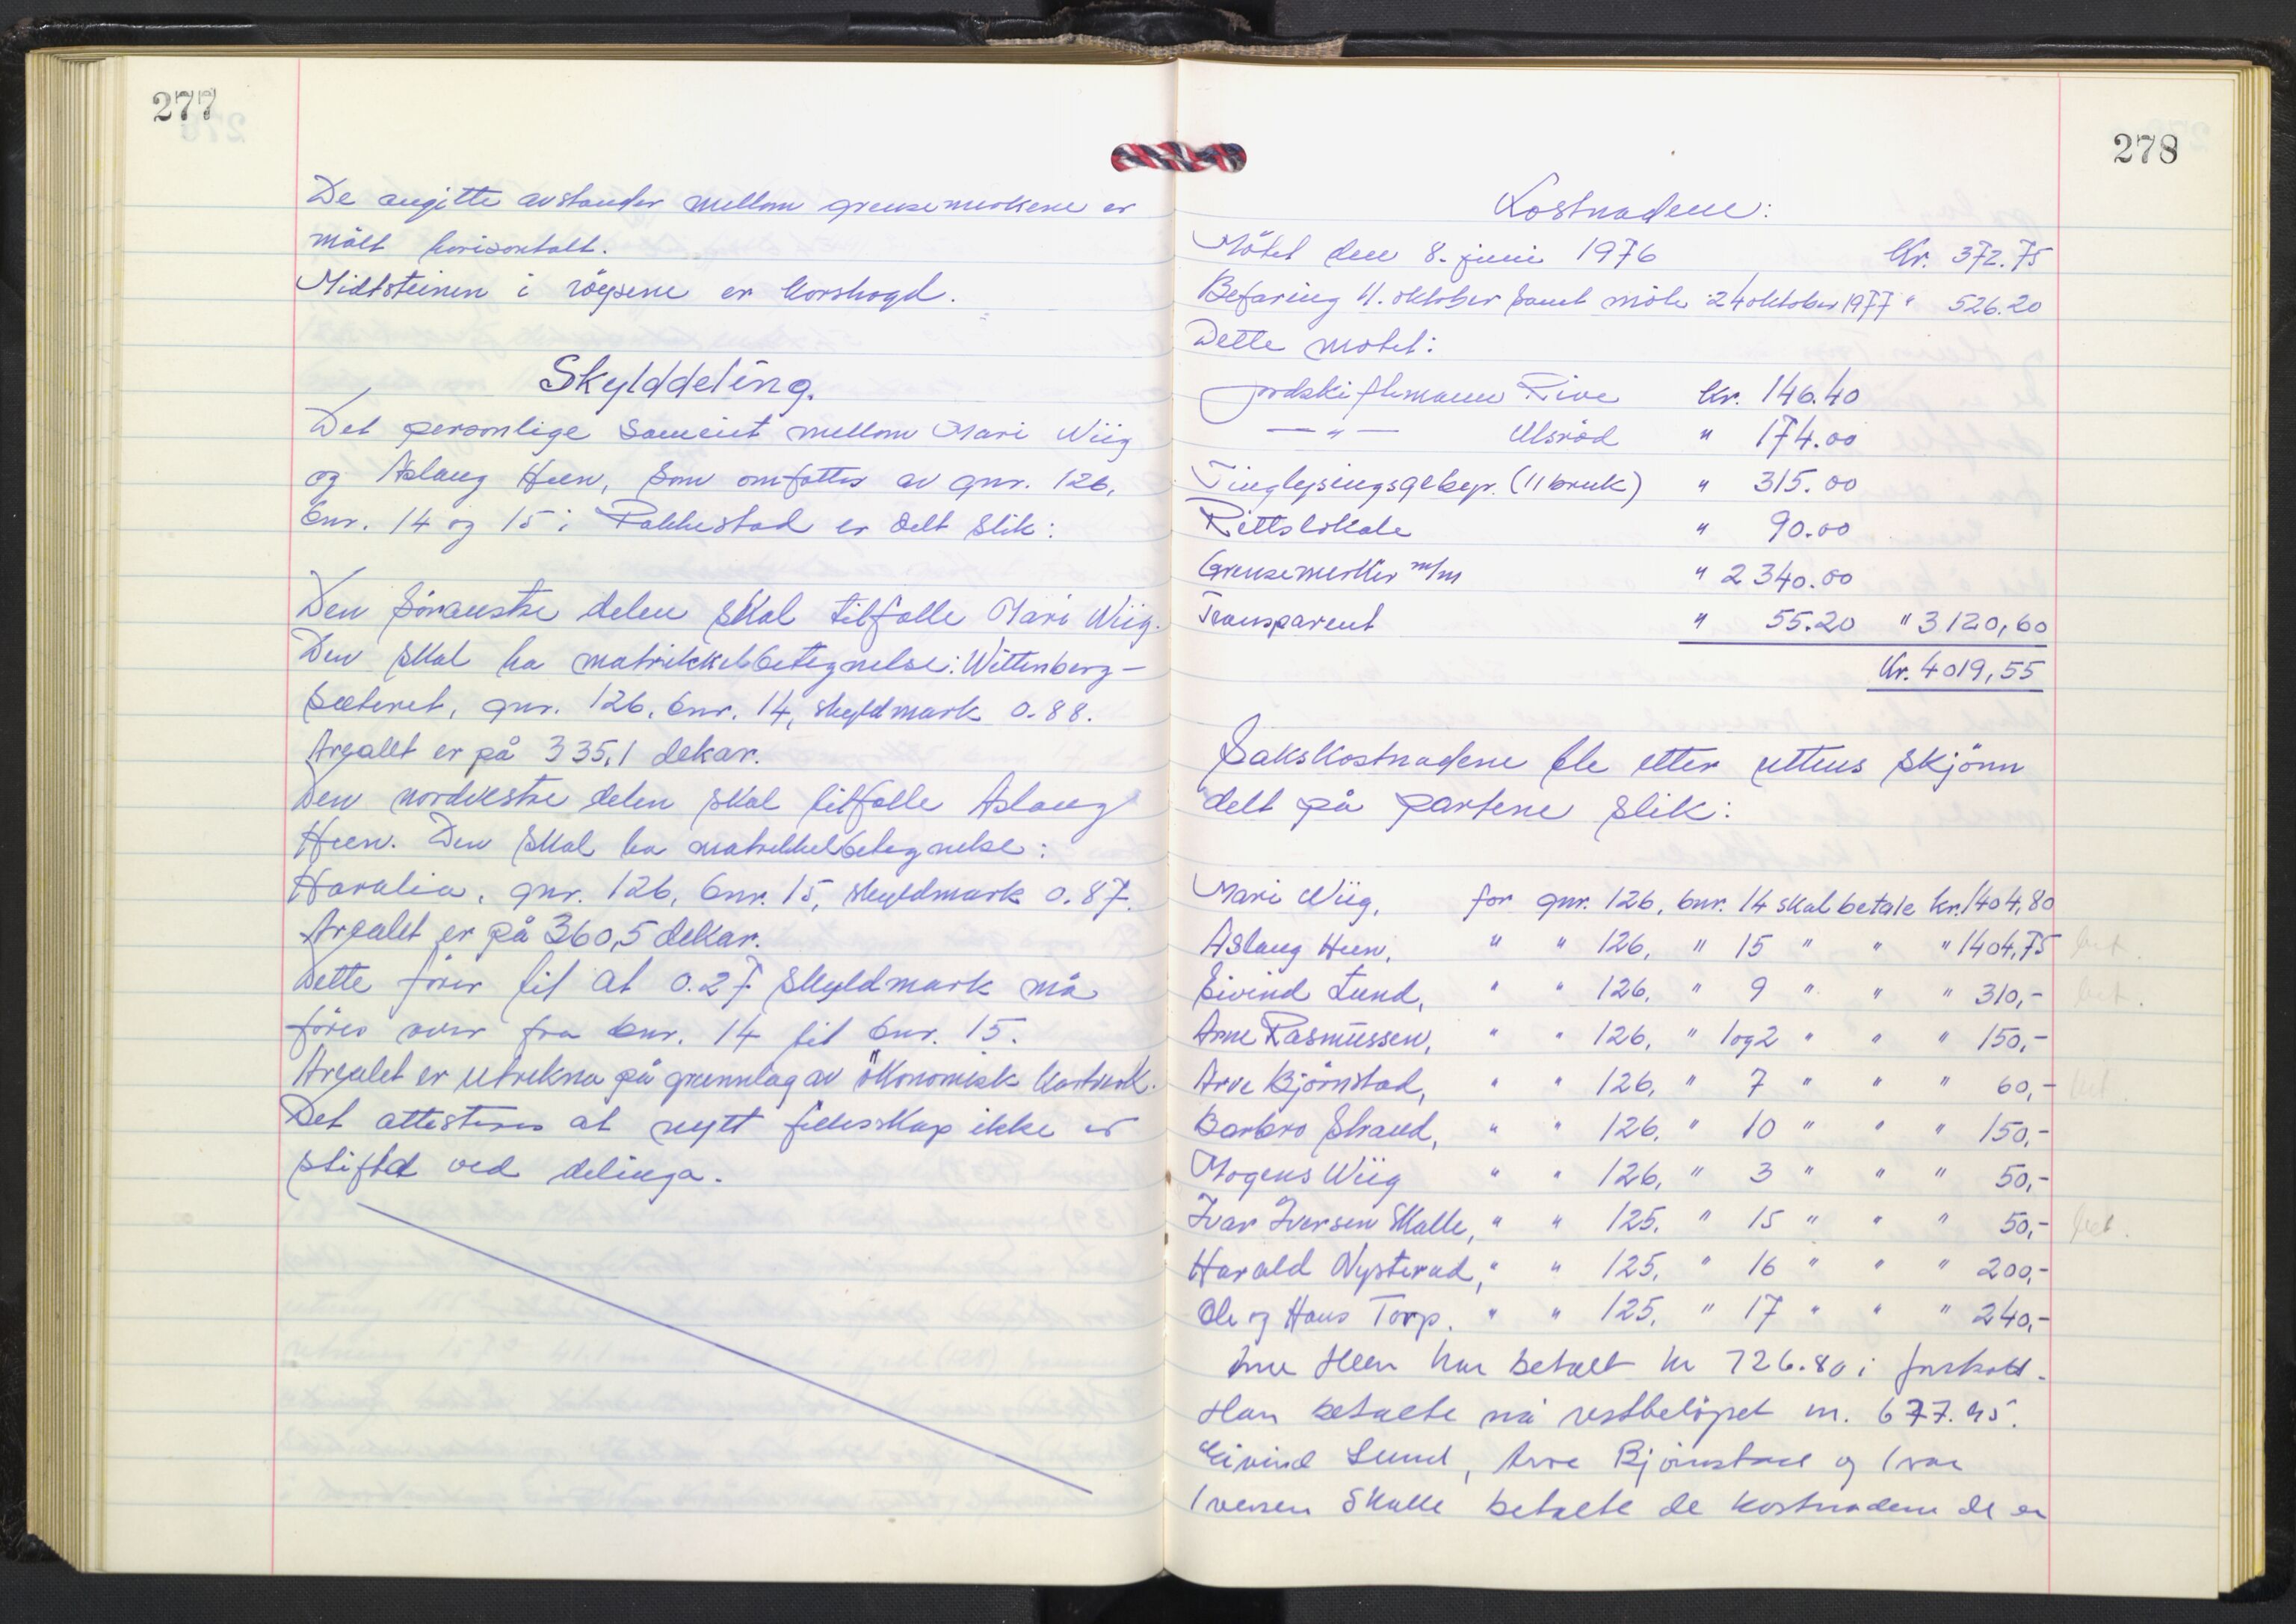 277
De angitte avstander mellom grensemerkene er
målt horisontalt.
Midtsteinen i röysene er korshogd.
Skylddeling.
Det personlige sameiet mellom Mari Wiig
og Aslaug Heen, som omfattes av gnr. 126,
bnr. 14 og 15 i Rakkestad er delt slik:
Den söraustre delen skal tilfalle Mari Wiig.
Den skal ha matrikkelbetegnelse: Wittenberg-
sæteret, gnr. 126, bnr. 14, skyldmark 0.88.
Arealet er på 335,1 dekar.
Den nordvestre delen skal tilfalle Aslaug
Heen. Den skal ha matrikkelbetegnelse:
Haralia, gnr. 126, bnr. 15, skyldmark 0.87.
Arealet er på 360,5 dekar.
Dette förer til at 0.27 skyldmark må
föres over fra bnr. 14 til bnr. 15.
Arealet er utrekna på grunnlag av ökonomisk kartverk.
Det attesteres at nytt fellesskap ikke er
stiftet ved delinga.
278
Kostnadene:
Mötet den 8. juni 1976 Kr. 372.75
Befaring 4. oktober samt möte 24 oktober 1977 " 526.20
Dette mötet:
Jordskiftemann Rive Kr. 146.40
— " — Ulsröd " 174.00
Tinglysingsgebyr. (11 bruk) " 315.00
Rettslokale " 90.00
Grensemerker m/m " 2340.00
Transparent " 55.20 " 3120,60
Kr. 4019,55
Sakskostnadene ble etter rettens skjönn
delt på partene slik:
Mari Wiig, for gnr. 126, bnr. 14 skal betale kr. 1404,80
Aslaug Heen, " " 126, " 15 " " " 1404,75 bet.
Eivind Lund, " " 126, " 9 " " " 310,- bet.
Arne Rasmussen, " " 126, " 1og2 " " " 150,-
Arve Björnstad, " " 126, " 7 " " " 60,- bet.
Barbro Strand, " " 126, " 10 " " " 150,-
Mogens Wiig " " 126, " 3 " " " 50,-
Ivar Iversen Skalle, " " 125, " 15 " " " 50,- bet.
Harald Nysterud, " " 125, " 16 " " " 200,-
Ole og Hans Torp. " " 125, " 17 " " " 240,-
Heen har betalt kr 726.80 i forskott.
Han betalte nå restbelöpet kr. 677.95.
Eivind Lund, Arve Björnstad og Ivar
Iversen Skalle betalte de kostnadene de er